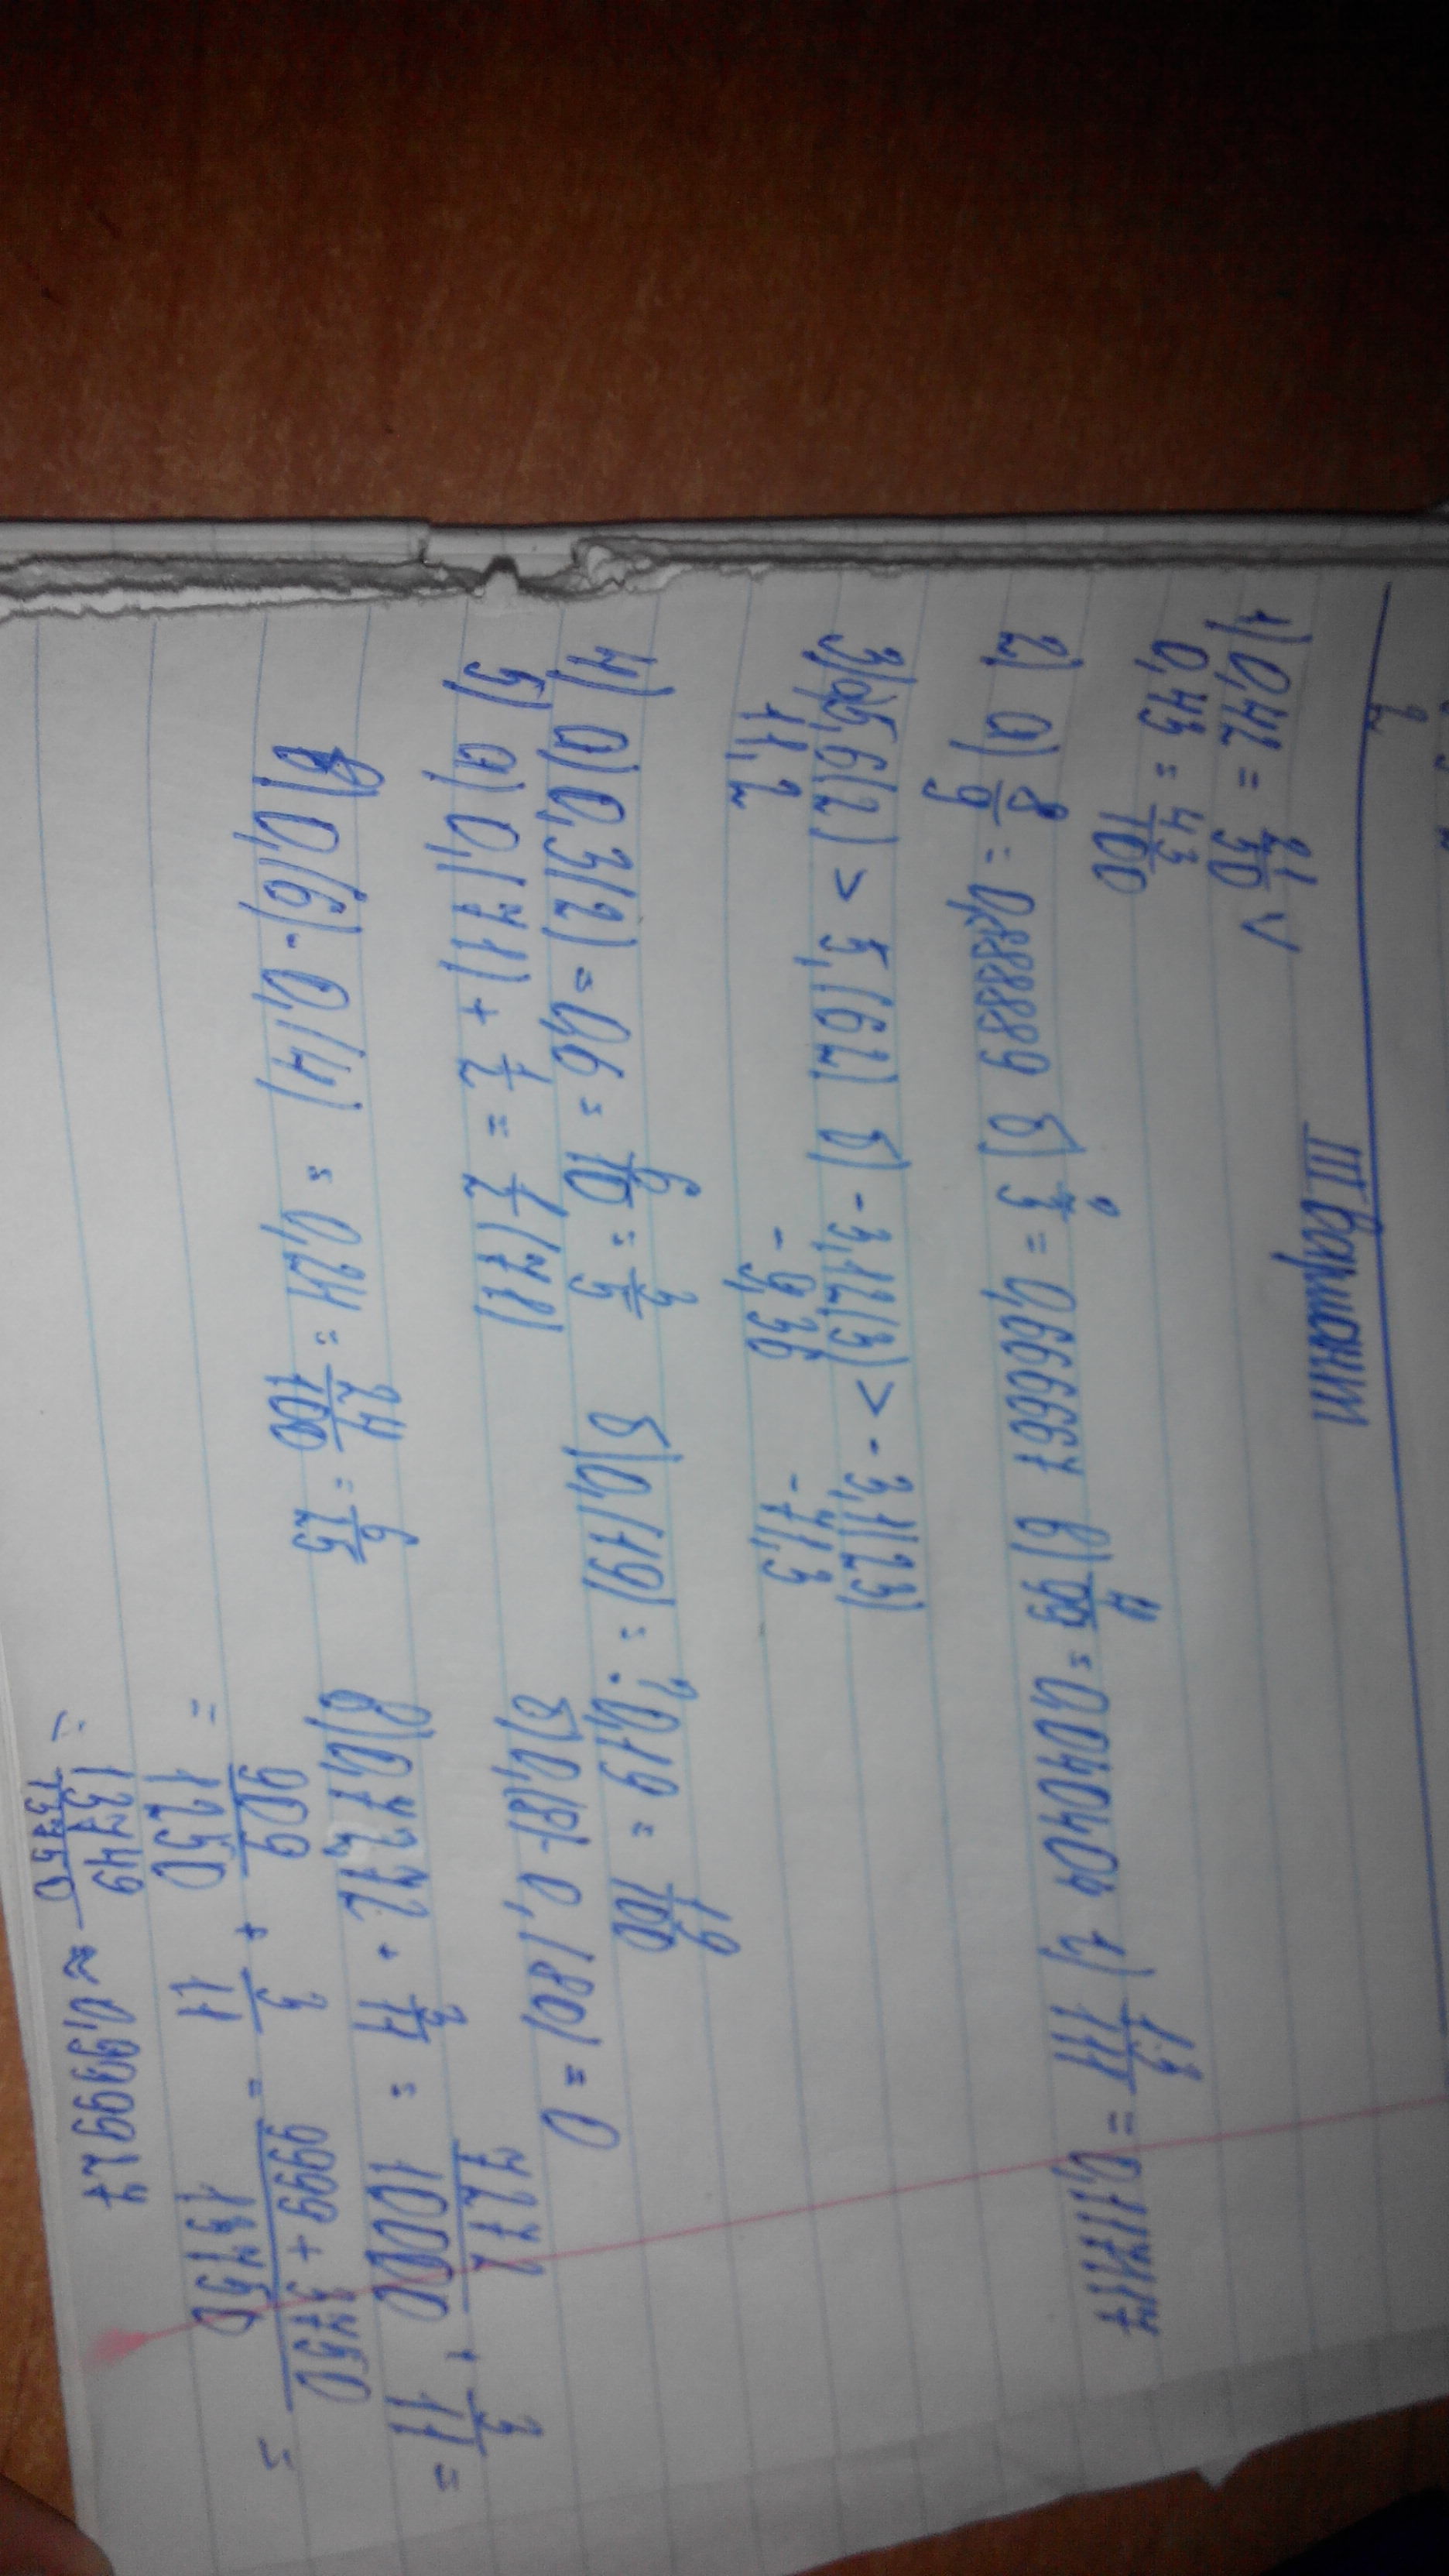 III вариант
1) 0,42 = 21/50 V
0,43 = 43/100
2) а) 8/9 = 0,888889 б) 2/3 = 0,6666667 в) 4/99 = 0,040404 г) 13/111 = 0,1171117
3) а) 5,6(2) > 5,(62) б) - 3,12(3) > - 3,1(23)
11,2 - 9,36 - 71,3
4) а) 0,3(2) = 0,6 = 6/10 = 3/5 б) 0,(19) = ? 0,19 = 19/100
5) а) 0,(71) + 1/2 = 1/2(71) б) 0,(8) - 0,(80) = 0
в) 0,(6) · 0,(4) = 0,24 = 24/100 = 6/25
в) 0,7272 + 3/11 = 7272/10000 + 3/11 =
= 909/1250 + 3/11 = 9999 + 3750/13750 =
= 13749/13750 ≈ 0,999927